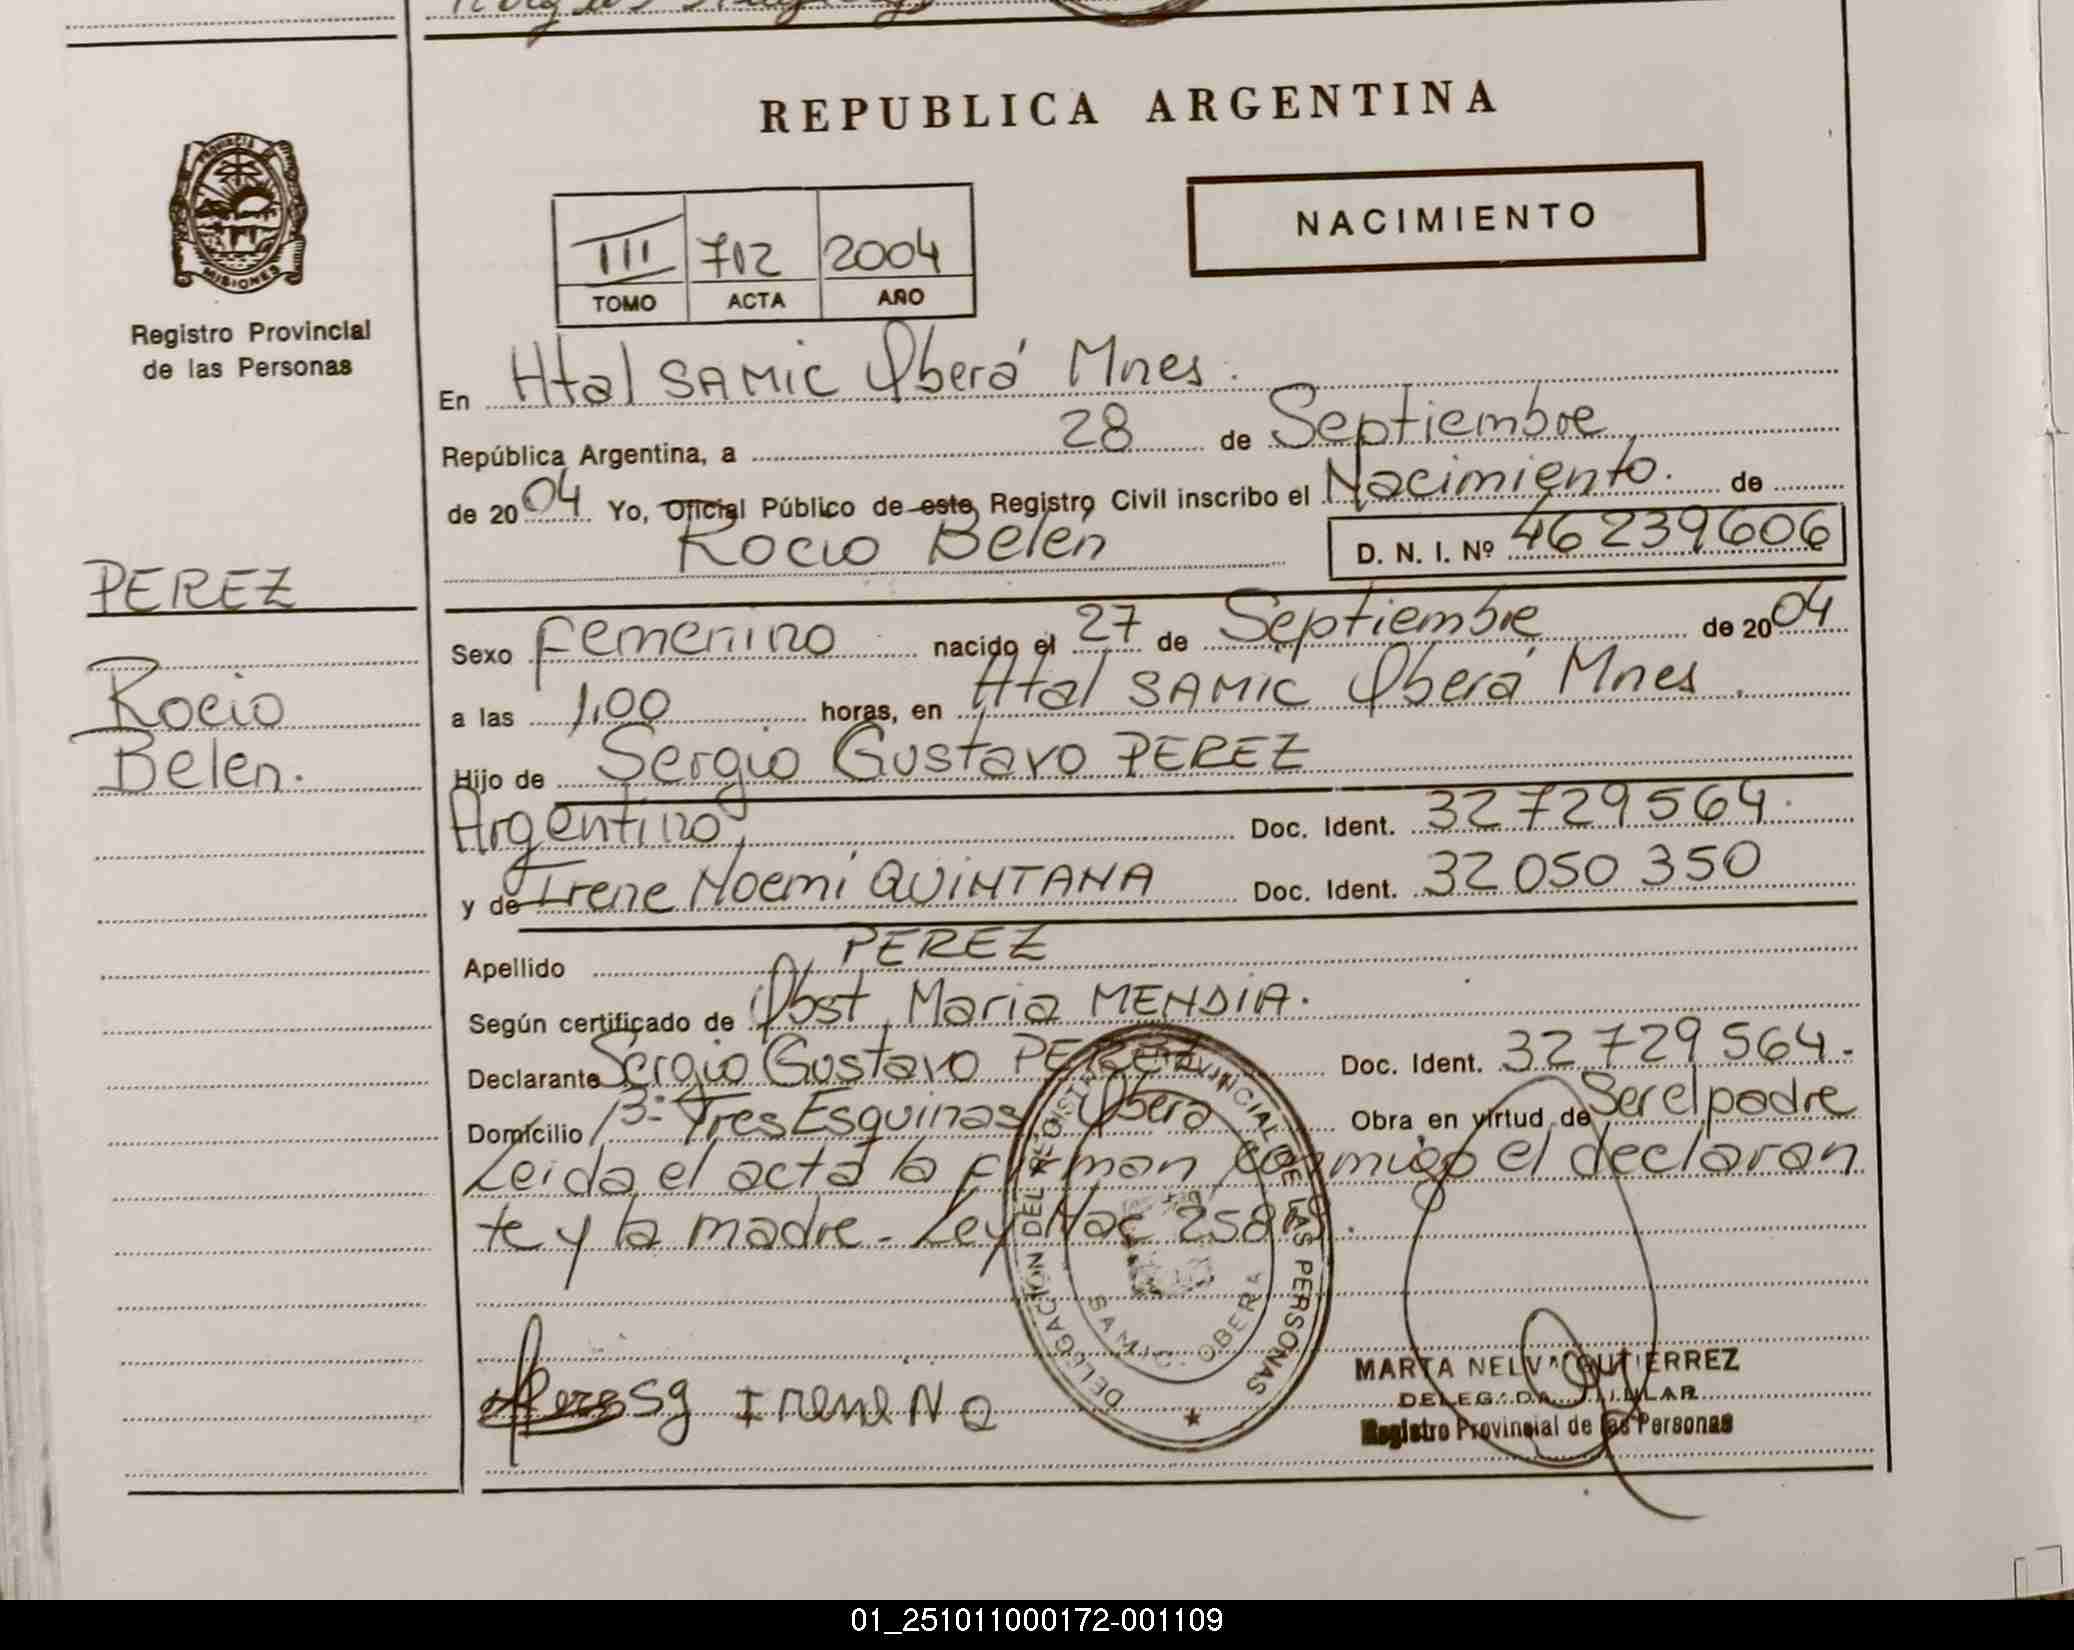 REPUBLICA ARGENTINA
PROVINCIA DE
MISIONES
Registro Provincial
de las Personas
NACIMIENTO
III 712 2004
TOMO ACTA AÑO
En Htal SAMIC Oberá Mnes.
República Argentina, a 28 de Septiembre
de 2004 Yo, Oficial Público de este Registro Civil inscribo el Nacimiento. de
Rocio Belén D. N. I. Nº 46 239606
PEREZ
Rocio
Belen.
Sexo Femenino nacido el 27 de Septiembre de 2004
a las 1,00 horas, en Htal SAMIC Oberá Mnes.
Hijo de Sergio Gustavo PEREZ
Argentino, Doc. Ident. 32 729564.
y de Irene Noemi QUINTANA Doc. Ident. 32 050 350
Apellido PEREZ
Según certificado de Obst Maria MENDIA.
Declarante Sergio Gustavo PEREZ Doc. Ident. 32 729 564.-
Domicilio Bº Tres Esquinas Oberá Obra en virtud de Ser el padre
Leida el acta la firman conmigo el declaran
te y la madre - Ley Nac
DELEGACION DEL REGISTRO PROVINCIAL DE LAS PERSONAS
SAMIC - OBERA
Perez Sg Irene N Q
MARTA NELVA GUTIERREZ
DELEGADA TITULAR
Registro Provincial de las Personas
01_251011000172-001109